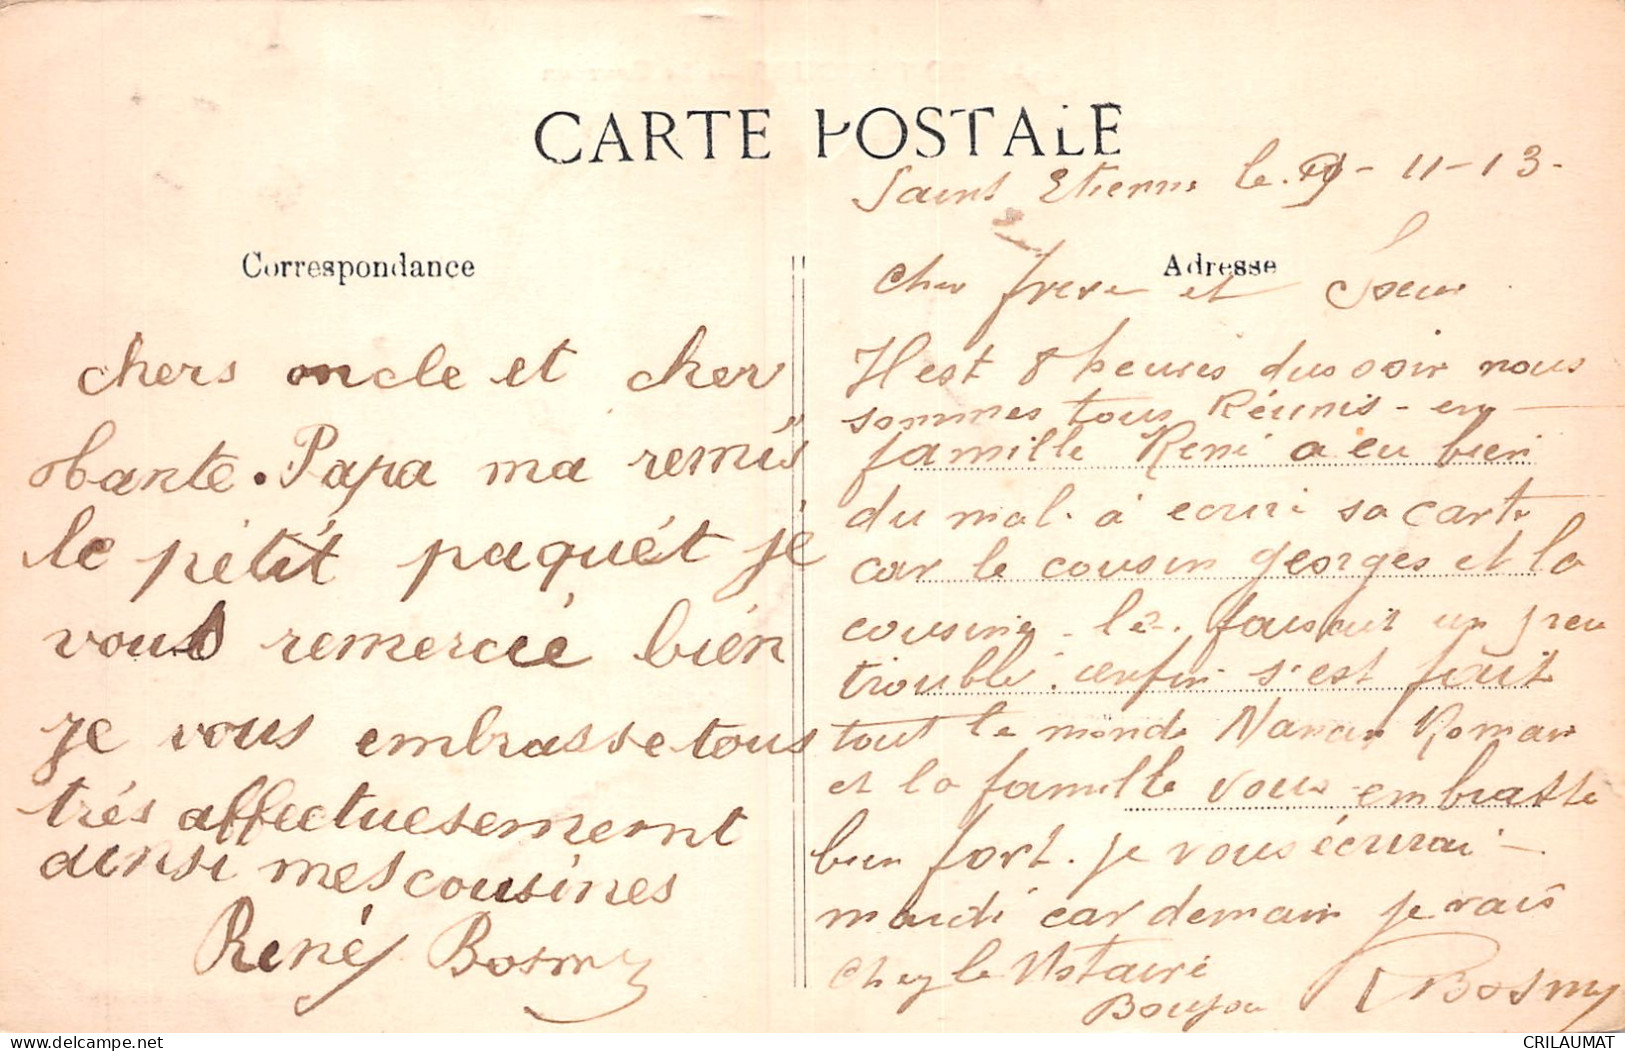 CARTE POSTALE
Correspondance
chers oncle et cher
tante. Papa ma remis
le petit paquét je
vous remercié bién
je vous embrasse tous
trés affectuesement
ainsi mes cousines
René Bosmy
Saint Etienne le 9-11-13.
Adresse
Cher frere et Soeur
Il est 8 heures du soir nous
sommes tous Réunis - en
famille René a eu bien
du mal. à ecrire sa carte
car le cousin georges et la
cousine le. faisait un peu
troublé. enfin s'est fait
tout le monde Roman
et la famille vous embrasse
bien fort. je vous écrirai -
mardi car demain je vais
chez le Notaire
Bosmy
CRILAUMAT